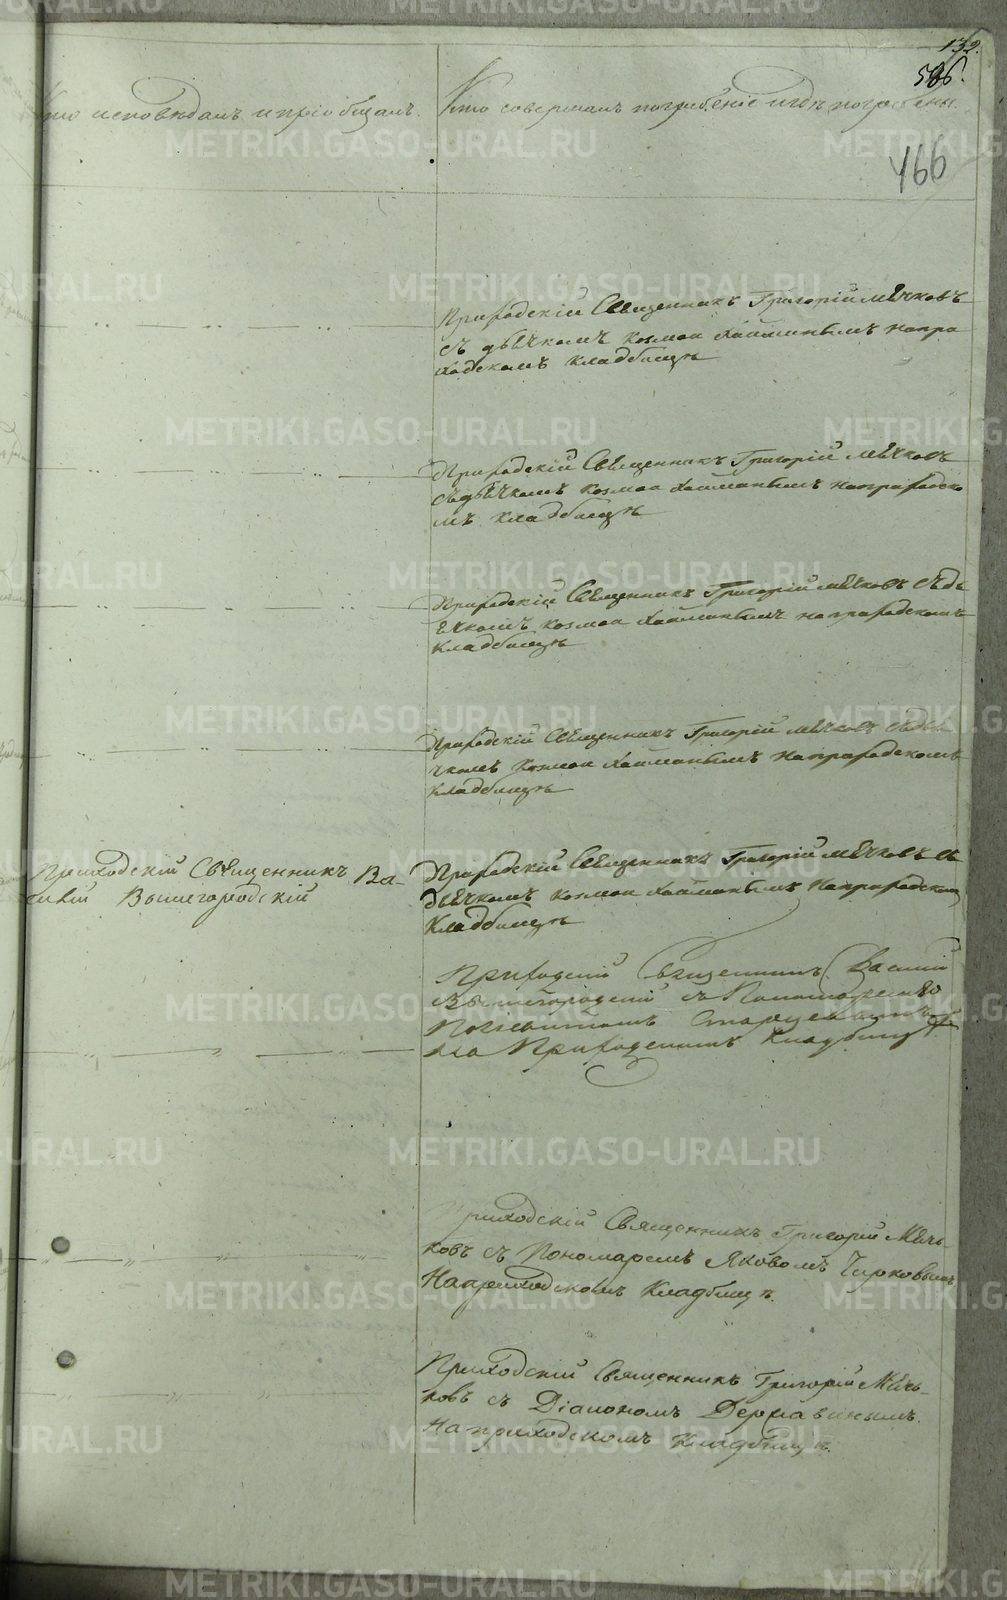 132.
466
Кто исповѣдалъ и пріобщалъ.
Кто совершалъ погребеніе и гдѣ погребены.
Приходскій Священникъ Григорій Мячковъ
съ дьячкомъ Козмою на прихо
дскомъ кладбищѣ
Приходскій Священникъ Григорій Мячковъ
съ дьячкомъ Козмою на приходско
мъ кладбищѣ
Приходскій Священникъ Григорій Мячковъ съ дь
ячкомъ Козмою на приходскомъ
кладбищѣ
Приходскій Священникъ Григорій Мячковъ съ дья
чкомъ Козмою на приходскомъ
кладбищѣ
Приходскій Священникъ Ва-
силій Вышегородскій
Приходскій Священникъ Григорій Мячковъ съ
дьячкомъ Козмою на приходскомъ
кладбищѣ
Приходскій Священникъ Василій
Вышегородскій съ Пономаремъ
на Приходскомъ Кладбищѣ
Приходскій Священникъ Григорій Мячь-
ковъ съ Пономаремъ Яковомъ Чирковымъ
На приходскомъ Кладбищѣ.
Приходскій Священникъ Григорій Мячь-
ковъ съ Діакономъ Державинымъ.
На приходскомъ Кладбищѣ.
METRIKI.GASO-URAL.RU